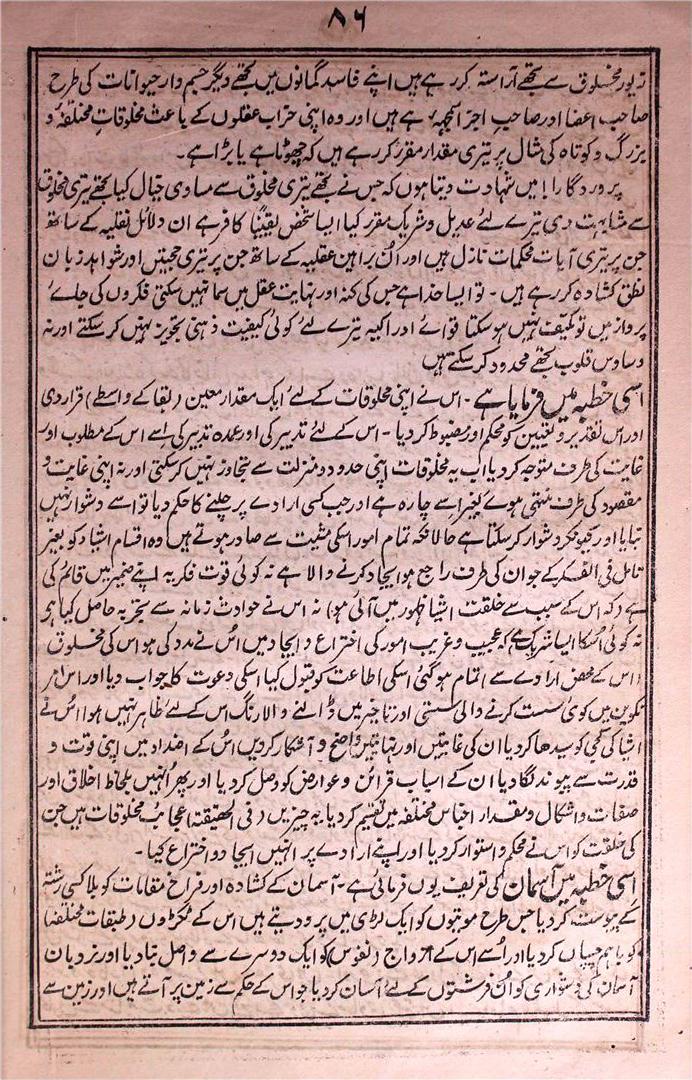 ۸۶
زیور مخلوق سے تجھے آراستہ کر رہے ہیں اپنے فاسد گمانوں میں تجھے دیگر جسیم وار حیوانات کی طرح
صاحب اعضا اور صاحب اجزا سمجھے ہے ہیں اور وہ اپنی خراب عقلوں کے باعث مخلوقات مختلفہ و
بزرگ و کوتاہ کی مثال پر تیری مقدار مقرر کر رہے ہیں کہ چھوٹا ہے یا بڑا ہے۔
پروردگارا! میں شہادت دیتا ہوں کہ جس نے تجھے تیری مخلوق سے مساوی خیال کیا تجھے تیری مخلوق
سے مشابہت دی تیرے لئے عدیل و شریک مقرر کیا ایسا شخص یقیناً کافر ہے ان دلائل نقلیہ کے ساتھ
جن پر تیری آیات محکمات نازل ہیں اور ان براہین عقلیہ کے ساتھ جن پر تیری حجتیں اور شواہد زبان
نطق کشادہ کر رہے ہیں۔ تو ایسا خدا ہے جس کی کنہ اور نہایت عقل میں سما نہیں سکتی فکروں کی جائے
پرواز میں تو مکیف نہیں ہو سکتا قوائے ادراکیہ تیرے لئے کوئی کیفیت ذہنی تجویز نہیں کر سکتے اور نہ
وساوس قلوب تجھے محدود کر سکتے ہیں
اسی خطبہ میں فرمایا ہے۔ اس نے اپنی مخلوقات کے لئے ایک مقدار معین (بقا کے واسطے) قرار دی
اور اس تقدیر و تعیین کو محکم اور مضبوط کر دیا۔ اس کے لئے تدبیر کی اور عمدہ تدبیر کی اسے اس کے مطلوب اور
غایت کی طرف متوجہ کر دیا اب یہ مخلوقات اپنی حدود منزلت سے تجاوز نہیں کر سکتی اور نہ اپنی غایت و
مقصود کی طرف منتہی ہوئے بغیر اسے چارہ ہے اور جب کسی ارادے پر چلنے کا حکم دیا تو اسے دشوار نہیں
بنایا اور کیونکر دشوار کر سکتا ہے حالانکہ تمام امور اسکی مشیت سے صادر ہوتے ہیں وہ اقسام اشیاء کو بغیر
تامل فی الفکر کے جو ان کی طرف راجع ہو ایجاد کرنے والا ہے نہ کوئی قوت فکریہ اپنے ضمیر میں قائم کی
ہے (کہ اس کے سبب سے خلقت اشیا ظہور میں آئی ہو) نہ اس نے حوادث زمانہ سے تجربہ حاصل کیا ہے
نہ کوئی اسکا ایسا شریک ہے کہ عجیب و غریب امور کی اختراع و ایجاد میں اس نے مدد کی ہو اس کی مخلوق
اس کے محض ارادے سے اتمام ہو گئی اسکی اطاعت کو قبول کیا اسکی دعوت کا جواب دیا اور اس امر
تکوین میں کوئی سست کرنے والی سستی اور تاخیر میں ڈالنے والا رنگ اس کے لئے ظاہر نہیں ہوا اس نے
اشیا کی کجی کو سیدھا کر دیا ان کی غایتیں اور نہایتیں واضح و آشکار کردیں اس کے اضداد میں اپنی قوت و
قدرت سے پیوند لگا دیا ان کے اسباب قرائن و عوارض کو وصل کر دیا اور پھر انہیں بلحاظ اخلاق اور
صفات و اشکال و مقدار اجناس مختلفہ میں تقسیم کر دیا یہ چیزیں (فی الحقیقۃ) عجائب مخلوقات ہیں جن
کی خلقت کو اس نے محکم و استوار کر دیا اور اپنے ارادے پر انہیں ایجاد و اختراع کیا۔
اسی خطبہ میں آسمان کی تعریف یوں فرمائی ہے۔ آسمان کے کشادہ اور فراخ مقامات کو بلا کسی رشتہ
کے پیوست کر دیا جس طرح موتیوں کو ایک لڑی میں پرو دیتے ہیں اس کے ٹکڑوں (طبقات مختلفہ)
کو باہم چسپاں کر دیا اور اسے اس کے ازواج (نفوس) کو ایک دوسرے سے واصل بنا دیا اور نردبان
آسمان کی دشواری کو ان فرشتوں کے لئے آسان کر دیا جو اس کے حکم سے زمین پر آتے ہیں اور زمین سے